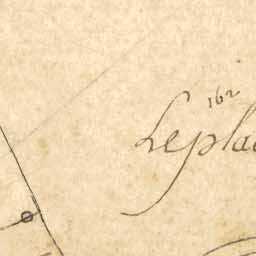 162
Lepla